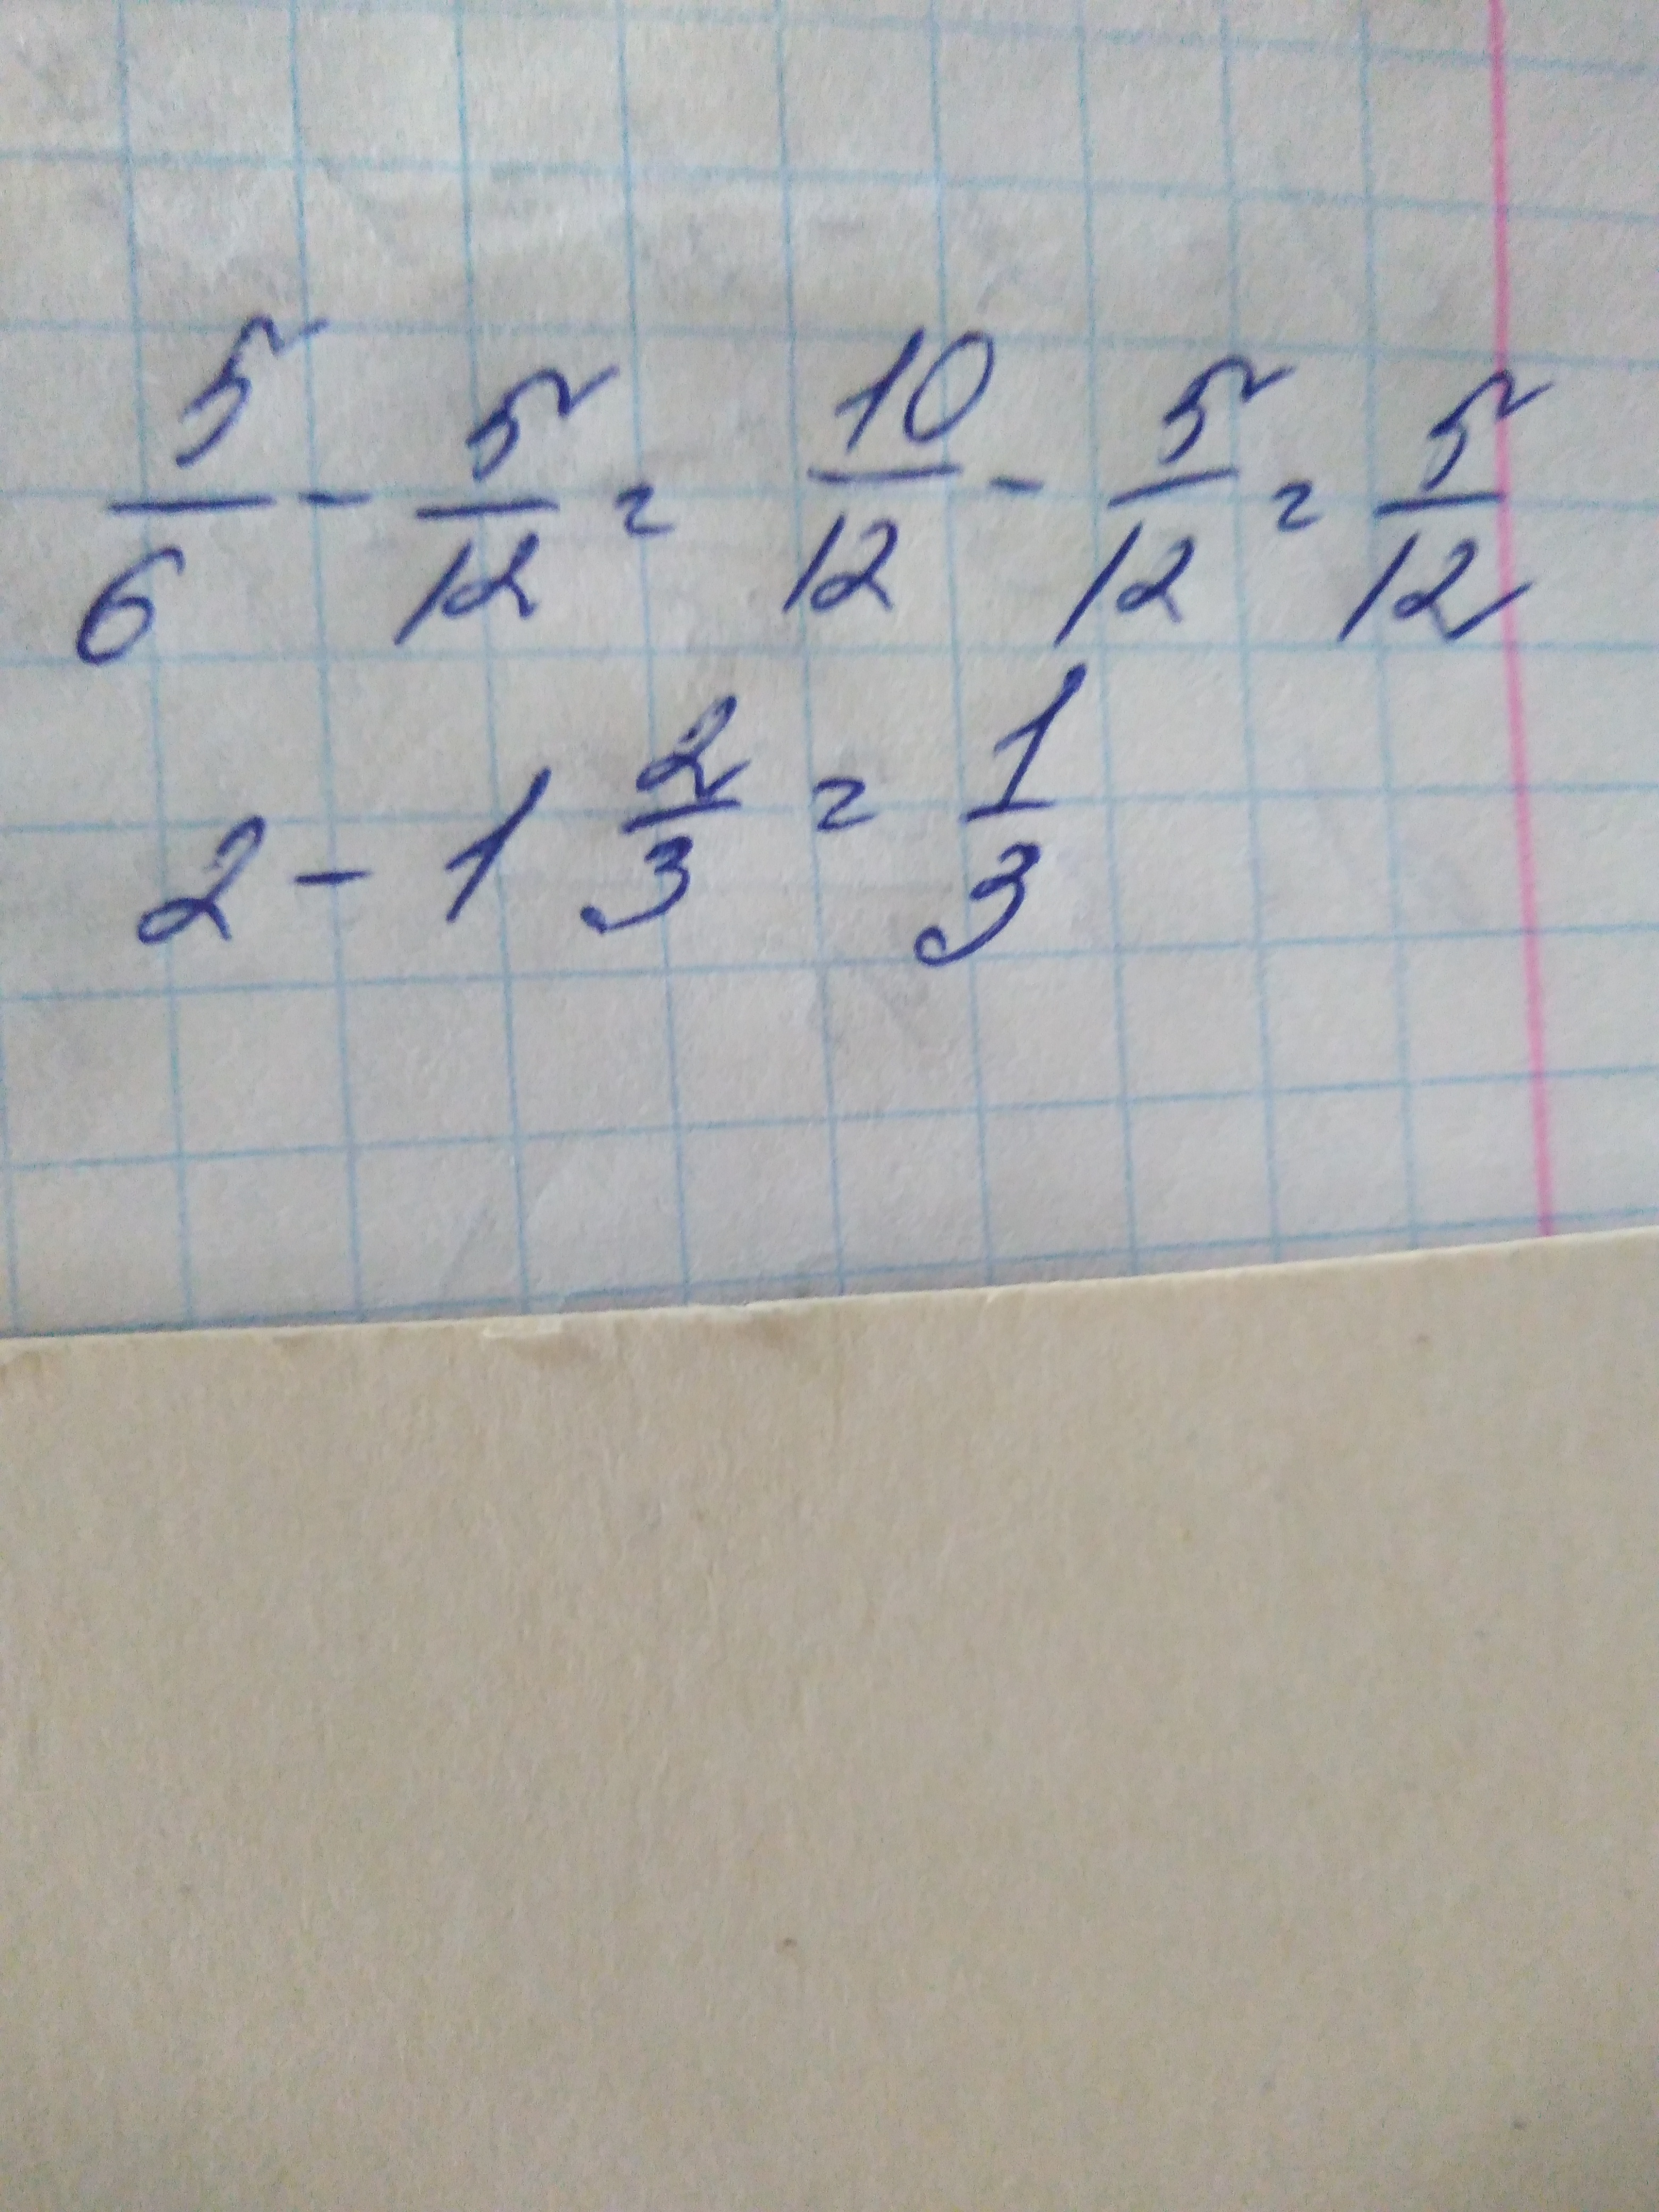 5/6 - 5/12 = 10/12 - 5/12 = 5/12
2 - 1 2/3 = 1/3